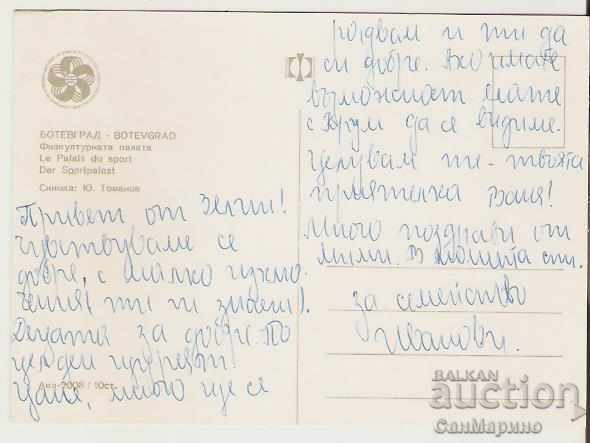 БОТЕВГРАД - BOTEVGRAD
Физкултурната палата
Le Palais du sport
Der Sportpalast
Снимка: Ю. Томанов
Привет от
Чувствуваме се
добре, с малко изклю
чения (ти ги знаеш).
Децата за добре. По
цял ден
много ще се
Дкл-2008 / 10ст.
радвам и ти да
си добре. Ако имате
възможност елате
с Крум да се видиме.
Целувам те - твоята
приятелка Ваня!
Много поздрави от
Мими. В къщата сти.
за семейство
Иванови.
BALKAN
auction
СанМарино